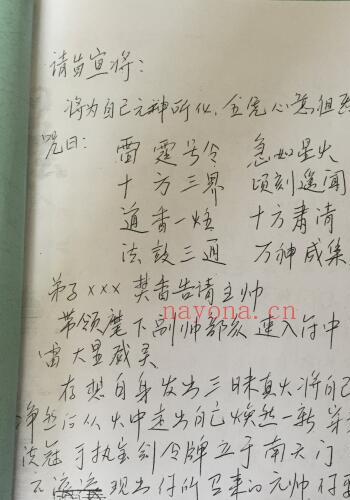 请旨宣将：
将为自己元神所化，全凭心意祖
咒曰：
雷霆号令 急如星火
十方三界 顷刻遥闻
道香一炷 十方肃清
法鼓三通 万神咸集
弟子xxx 焚香告请主帅
带领麾下副帅部众速入符中
雷大显威灵
nayona.cn
存想自身发出三昧真火将自己
净然后从火中走出自己焕然一新
法冠手执宝剑令牌立于南天门
现出符所召来的元帅